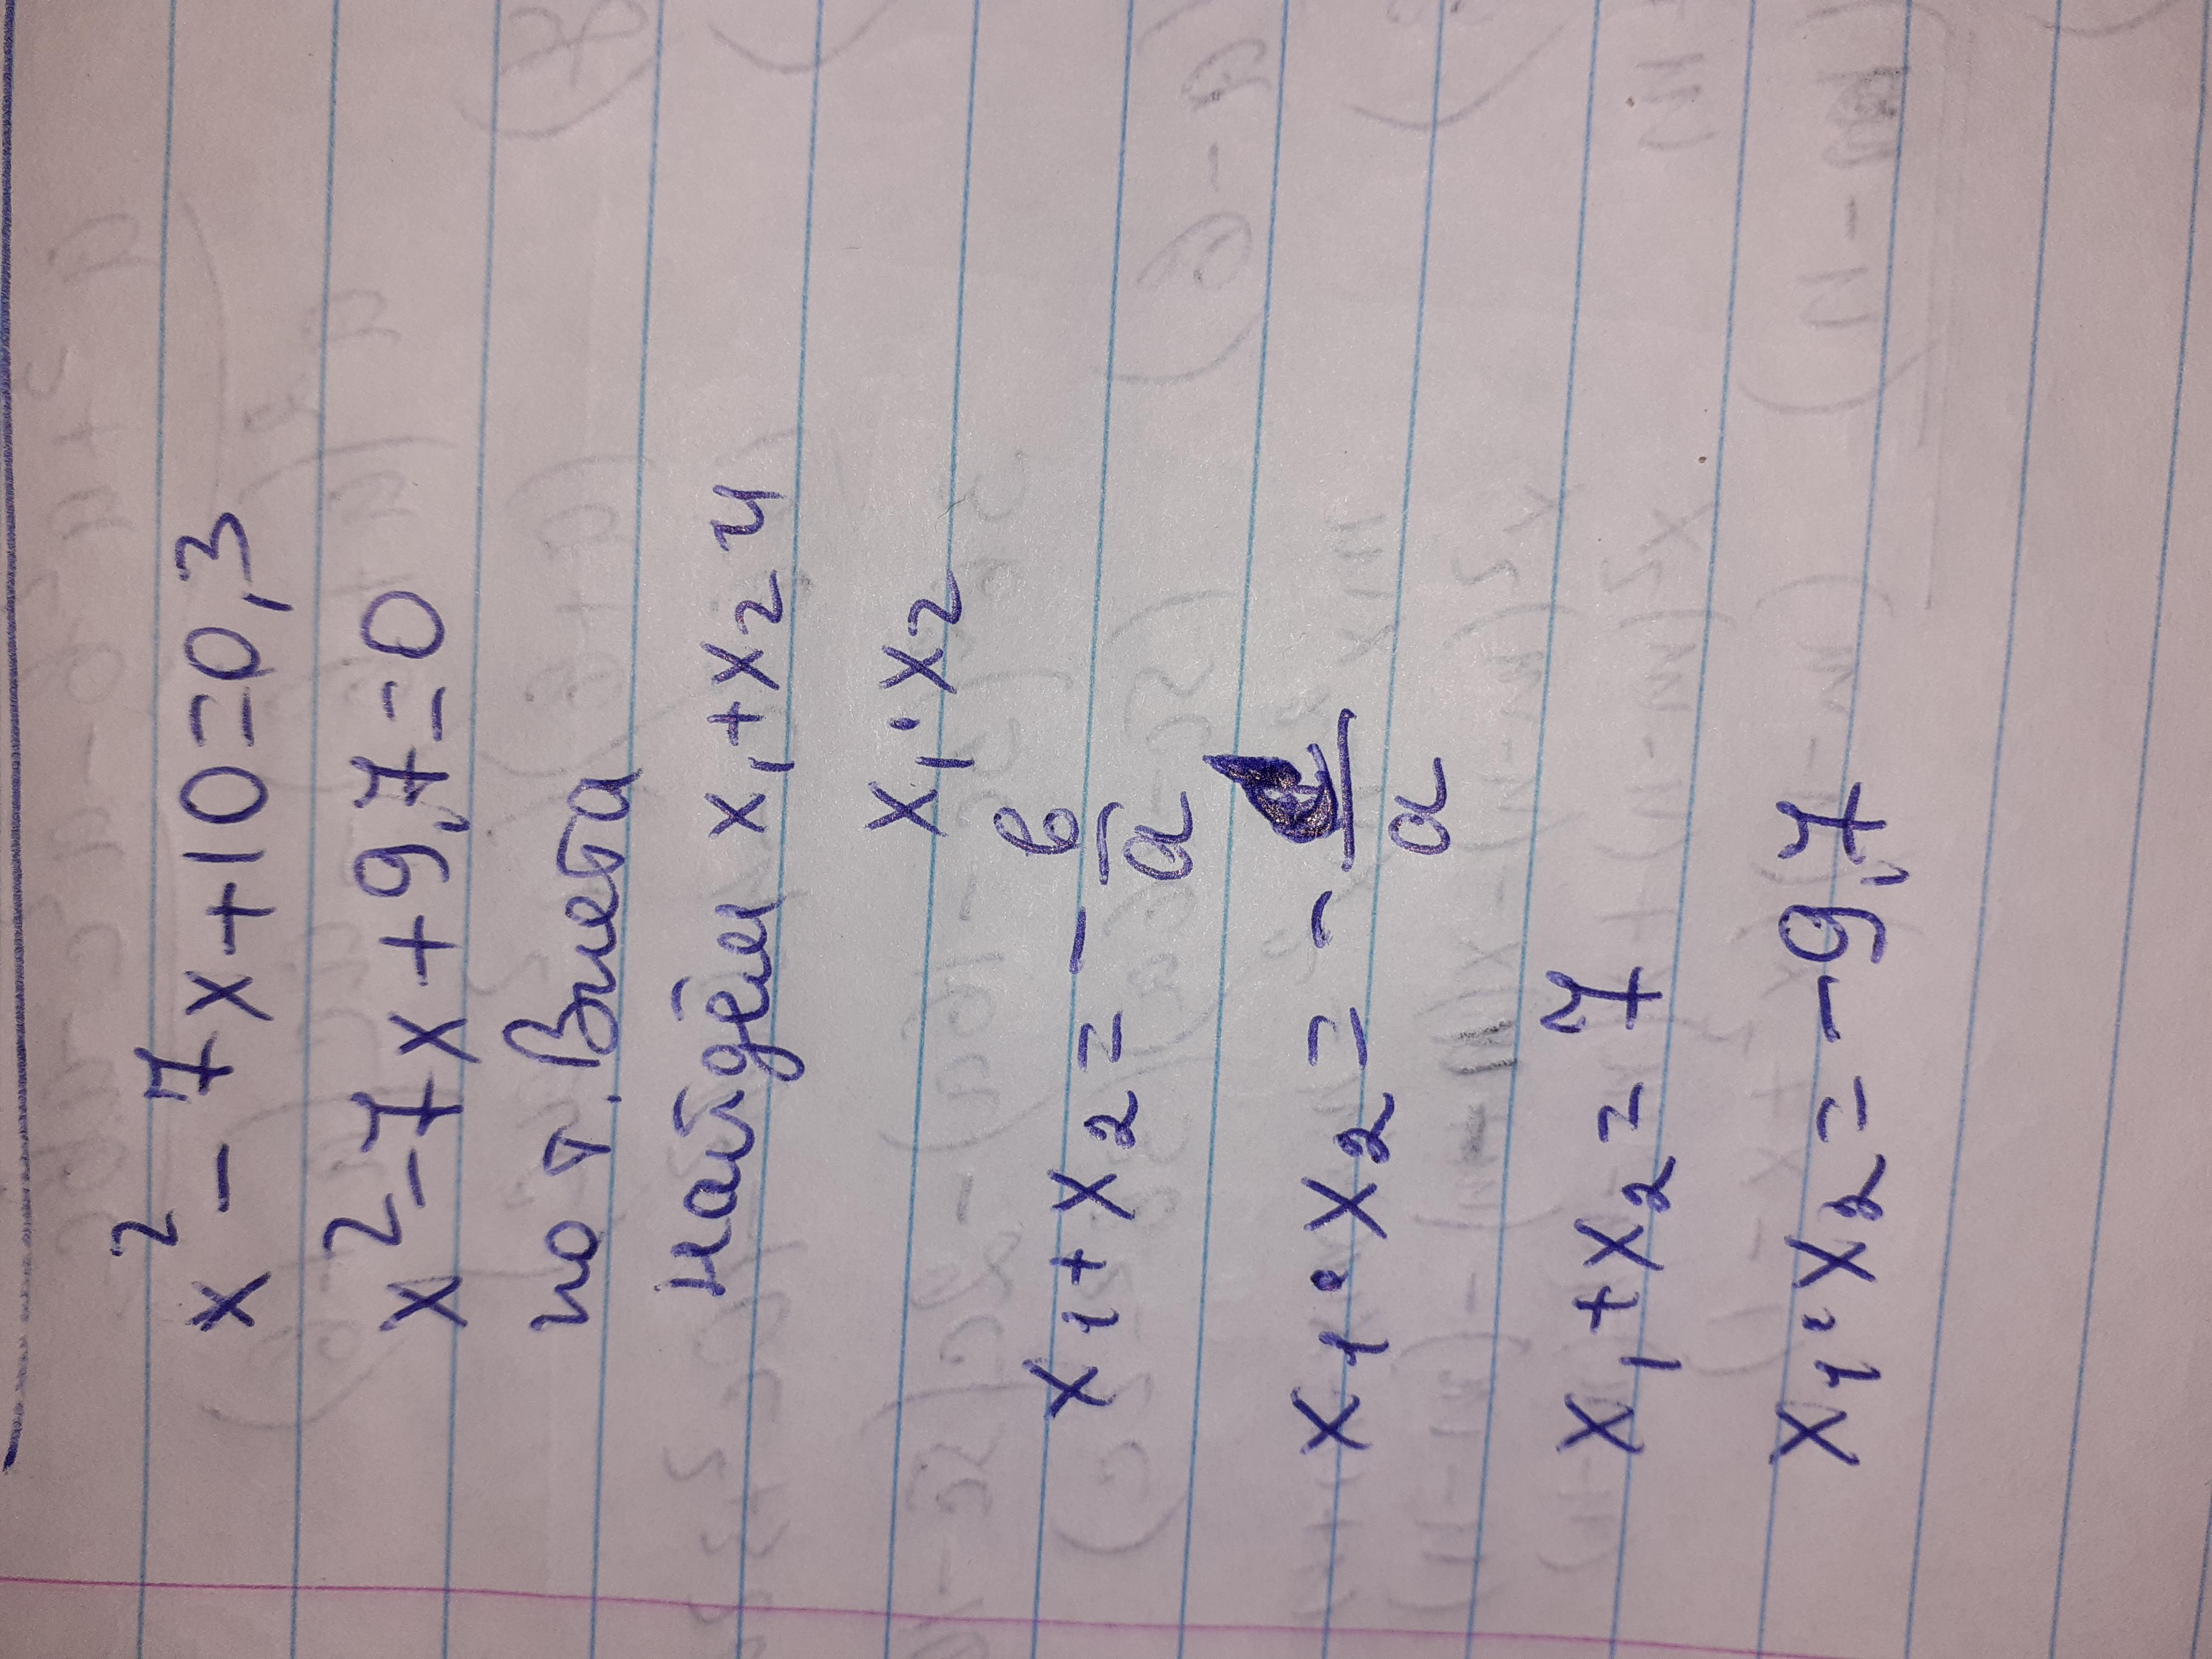 x² - 7x + 10 = 0,3
x² - 7x + 9,7 = 0
по т. Виета
найдём x₁ + x₂ и
x₁ · x₂
x₁ + x₂ = - в/а
x₁ · x₂ = - /а
x₁ + x₂ = 7
x₁ · x₂ = - 9,7